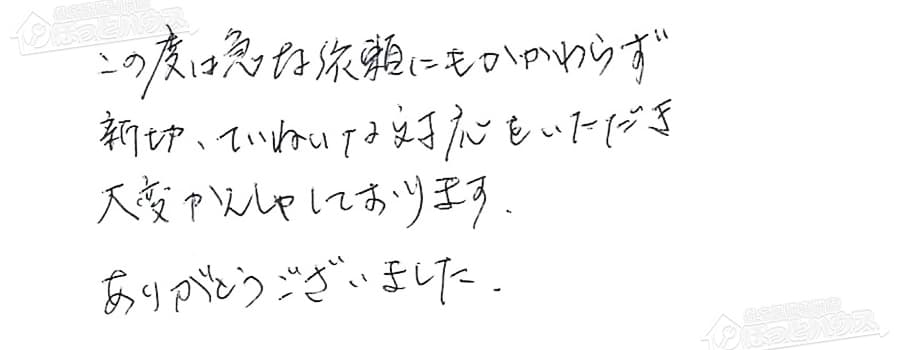 この度は急な依頼にもかかわらず
新切、ていねいな対応をいただき
大変かんしゃしております.
ありがとうございました.
ほっとハウス
ほっとハウス